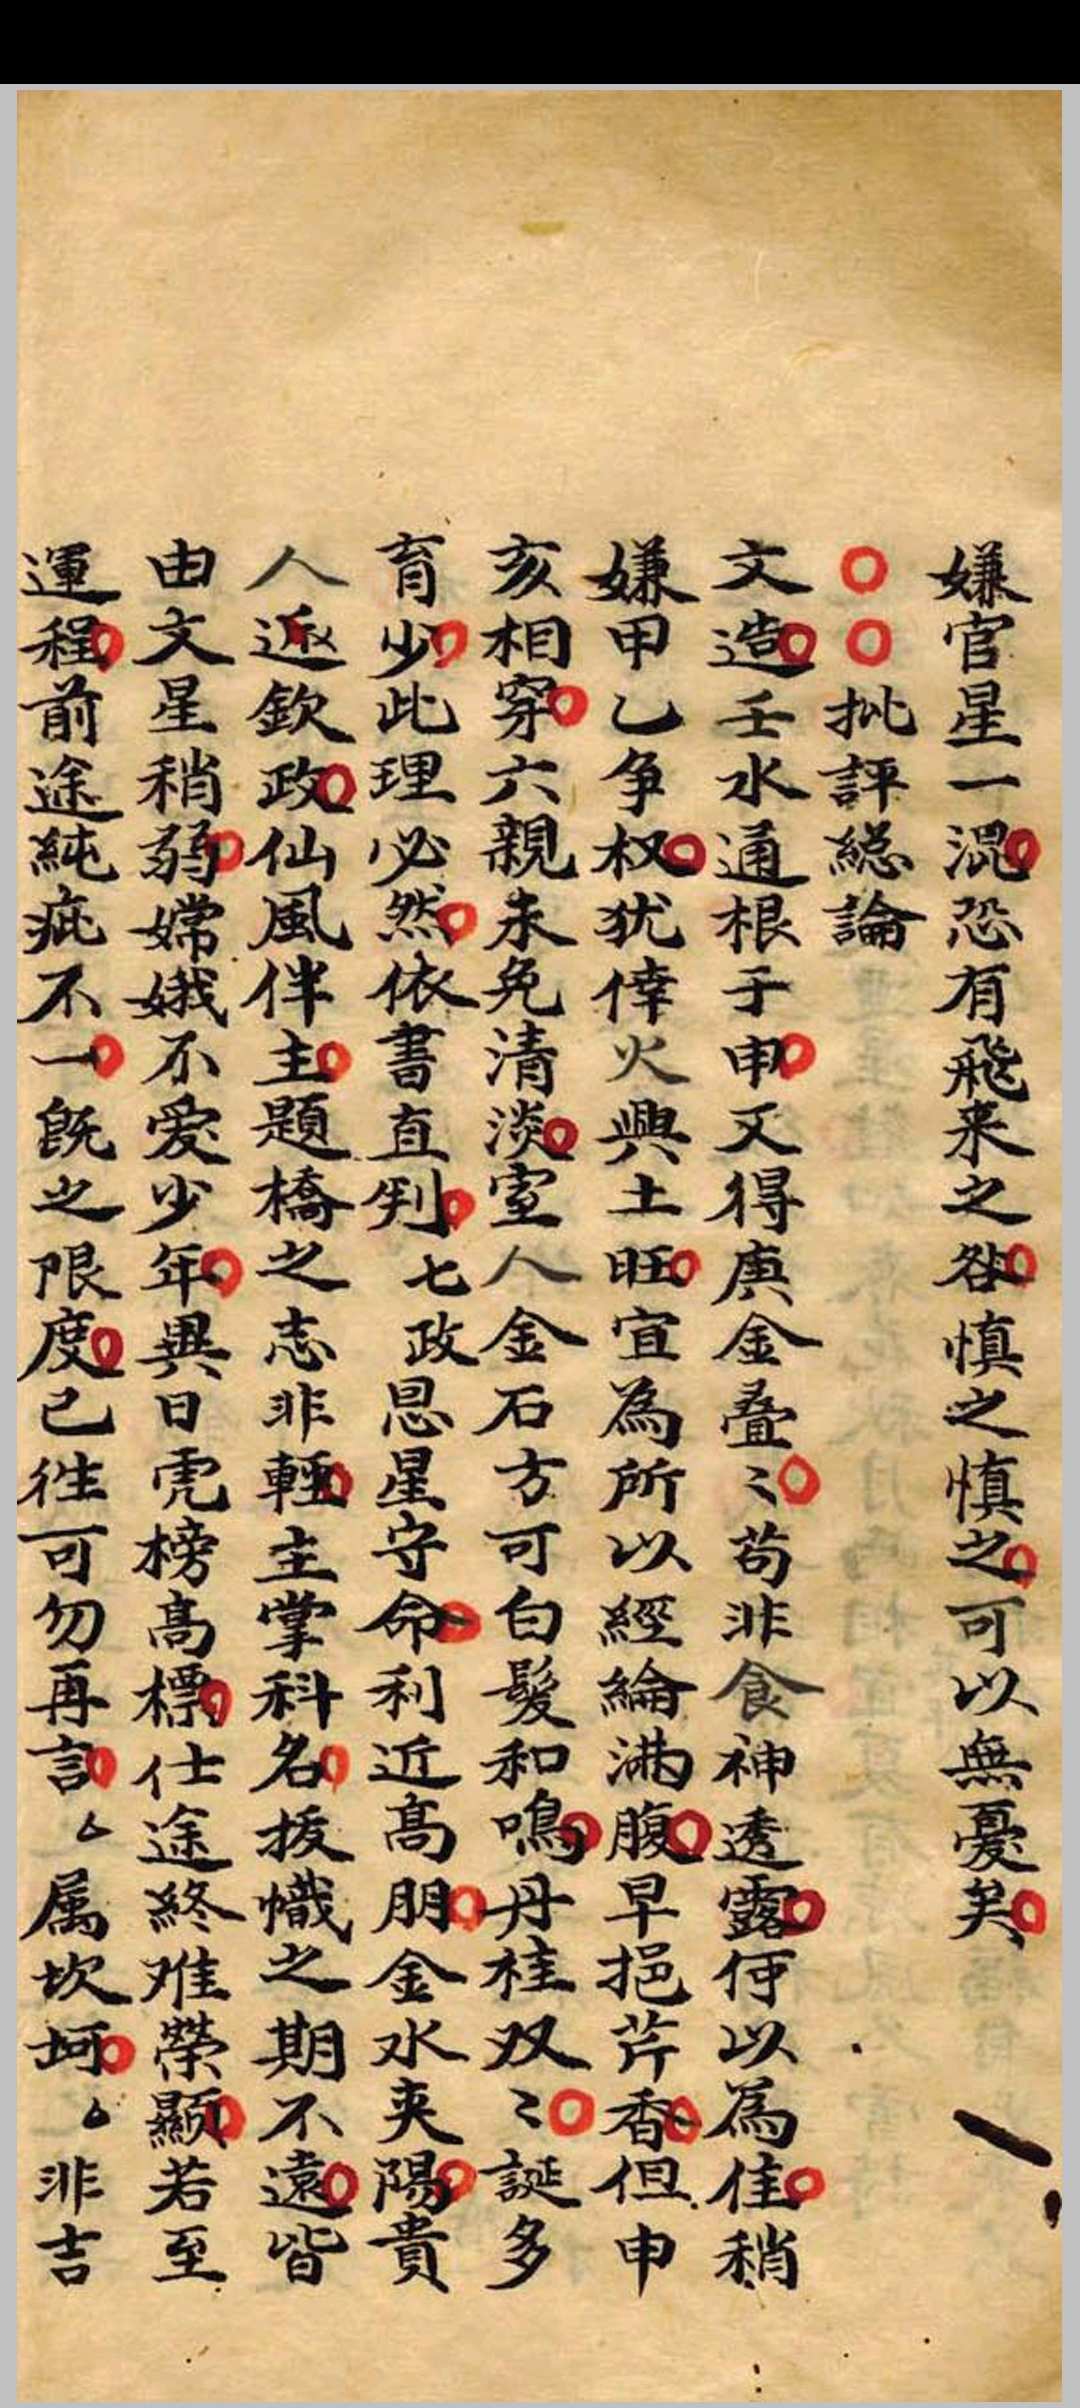 嫌官星一混恐有飛来之咎慎之慎之可以無憂矣
批評総論
文造壬水通根于申又得庚金叠〻苟非食神透露何以為佳稍
嫌甲乙争权犹倖火興土旺宜為所以經綸満腹早挹芹香但申
亥相穿六親未免清淡室人金石方可白髮和鳴丹桂双〻誕多
育少此理必然依書直判七政恩星守命利近高朋金水夾陽貴
人近欽政仙風伴主題橋之志非輕主掌科名拔幟之期不遠皆
由文星稍弱嫦娥不愛少年異日虎榜高標仕途終难榮顯若至
運程前途純疵不一既之限度已往可勿再言属坎坷非吉